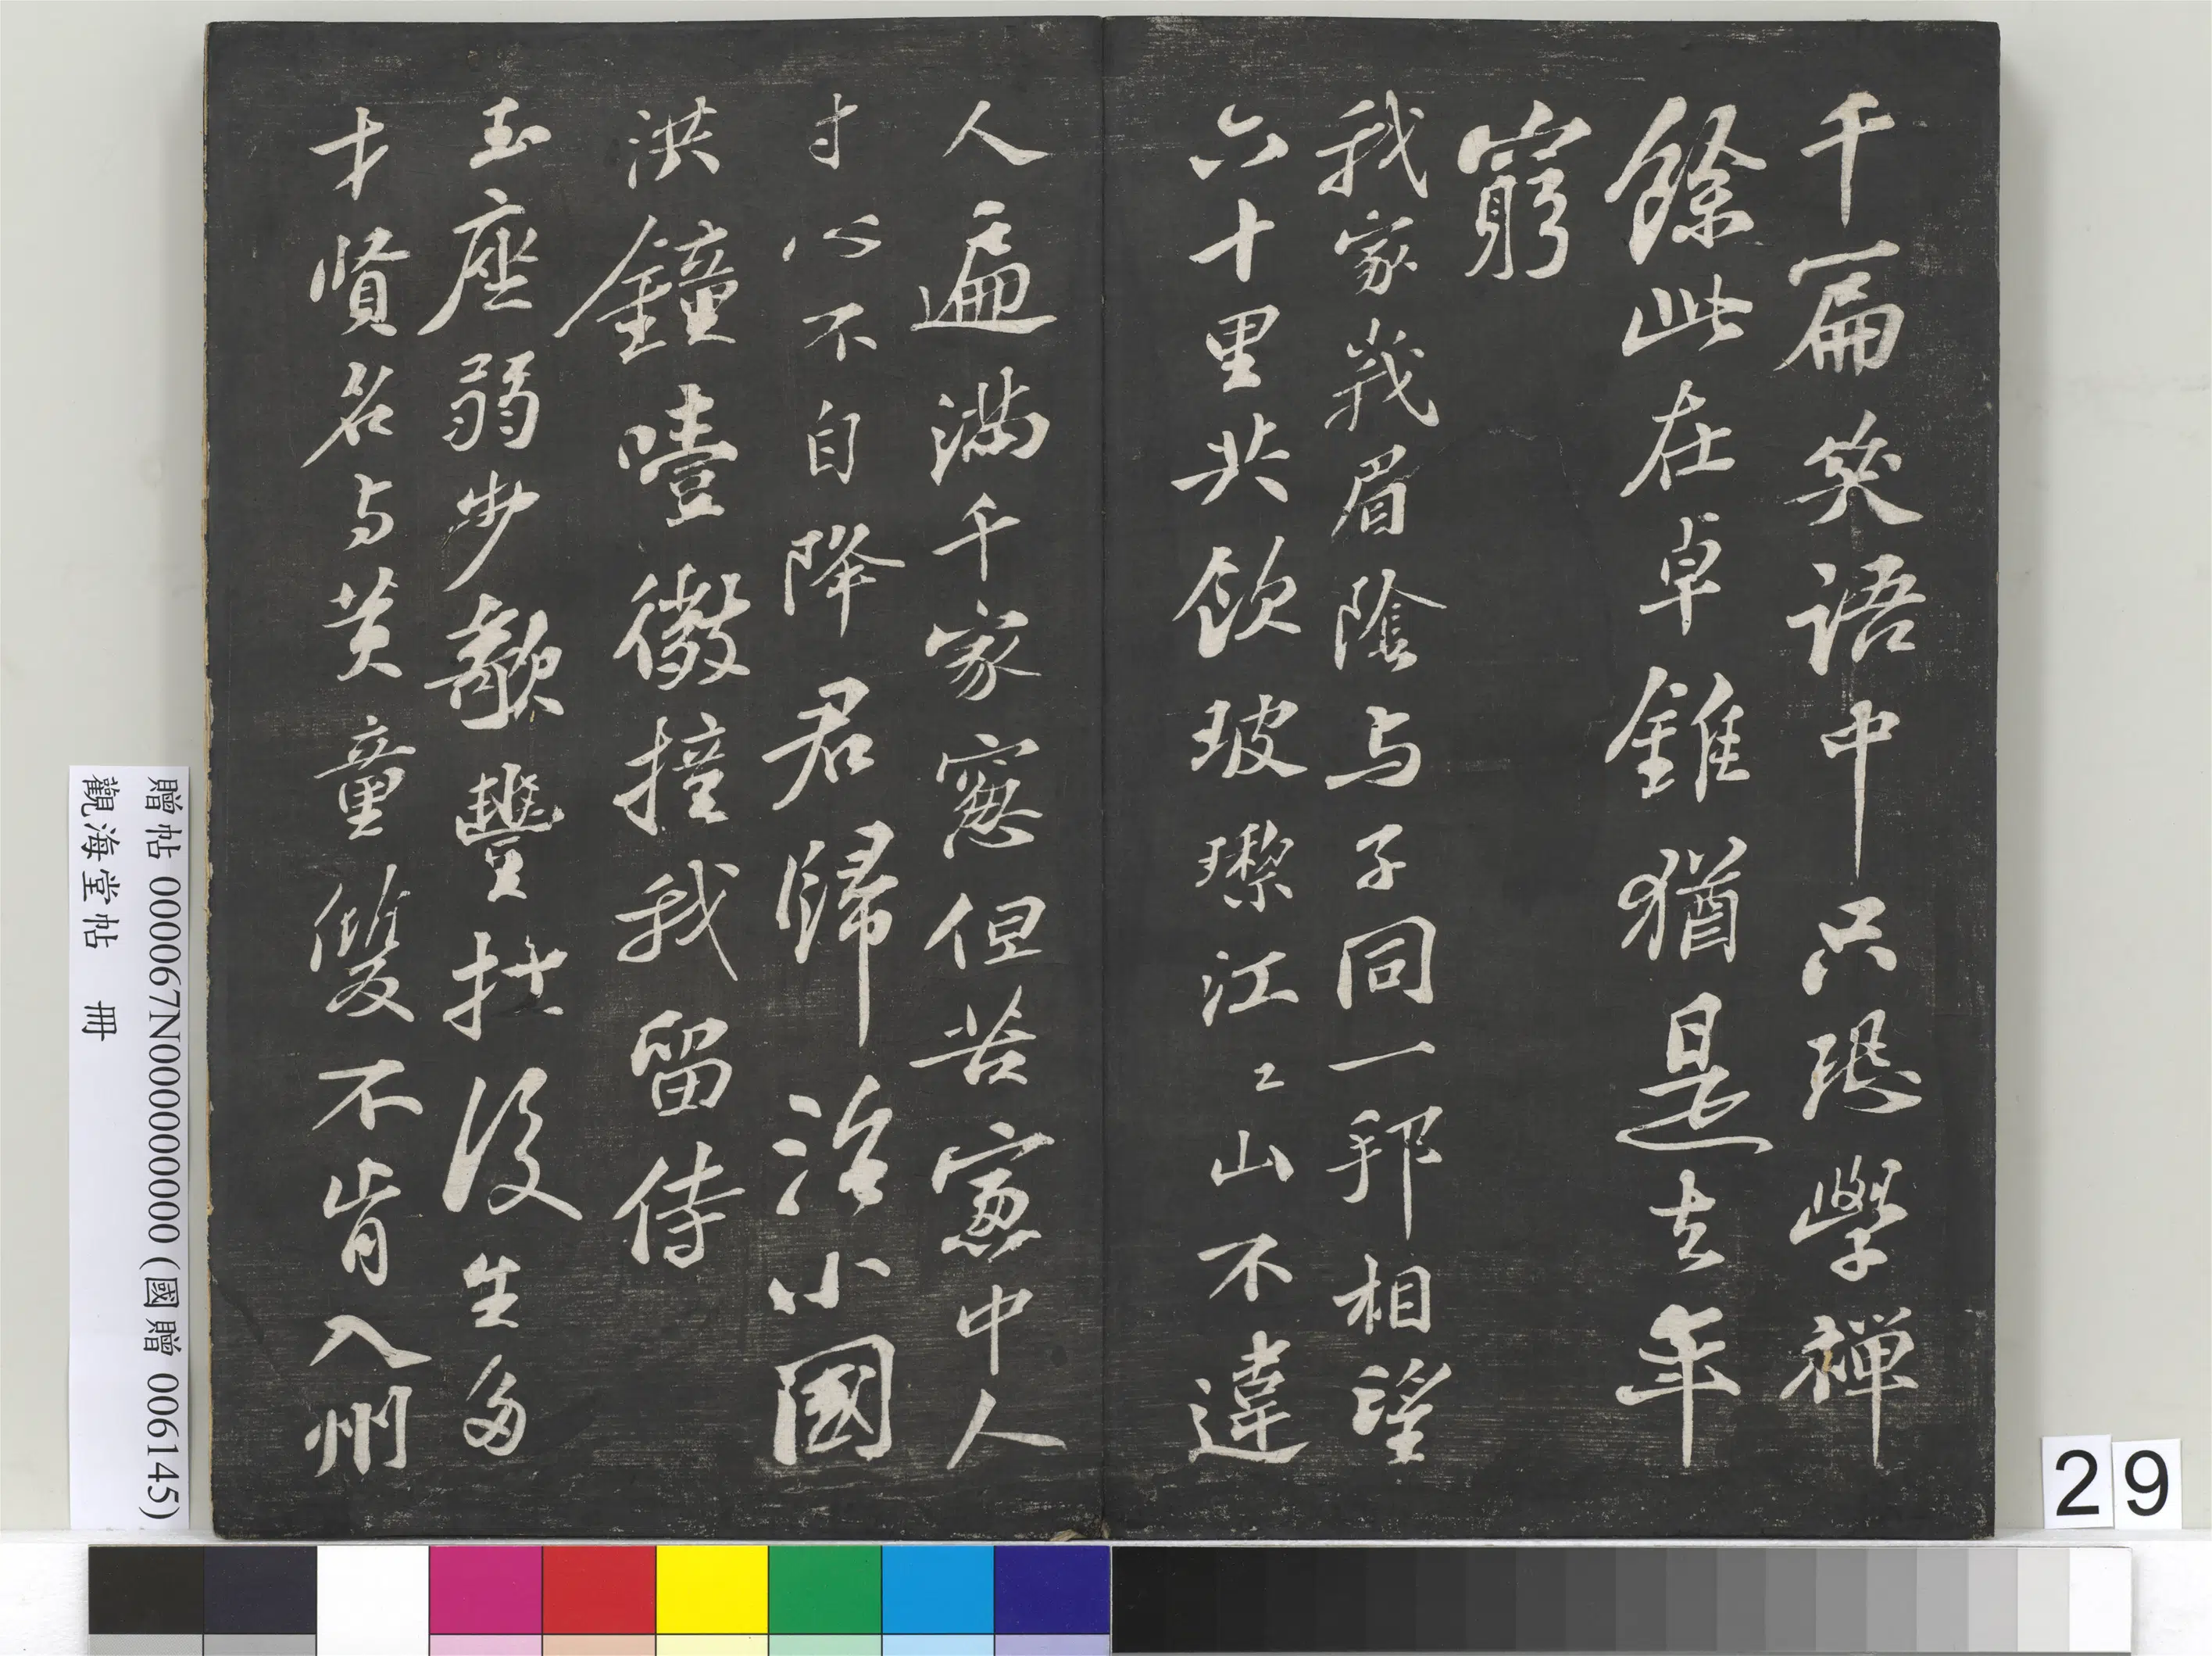 千篇笑語中只恐學禪
餘此在卓錐猶是去年
窮
我家峩眉陰与子同一邦相望
六十里共飲玻瓈江〻山不違
人遍滿千家窓但苦窓中人
寸心不自降君歸治小國
洪鐘噎微撞我留侍
玉座弱步欹豐扛後生多
才賢名与黃童雙不肯入州
贈帖 000067N000000000 (國贈 006145)
觀海堂帖 冊
29